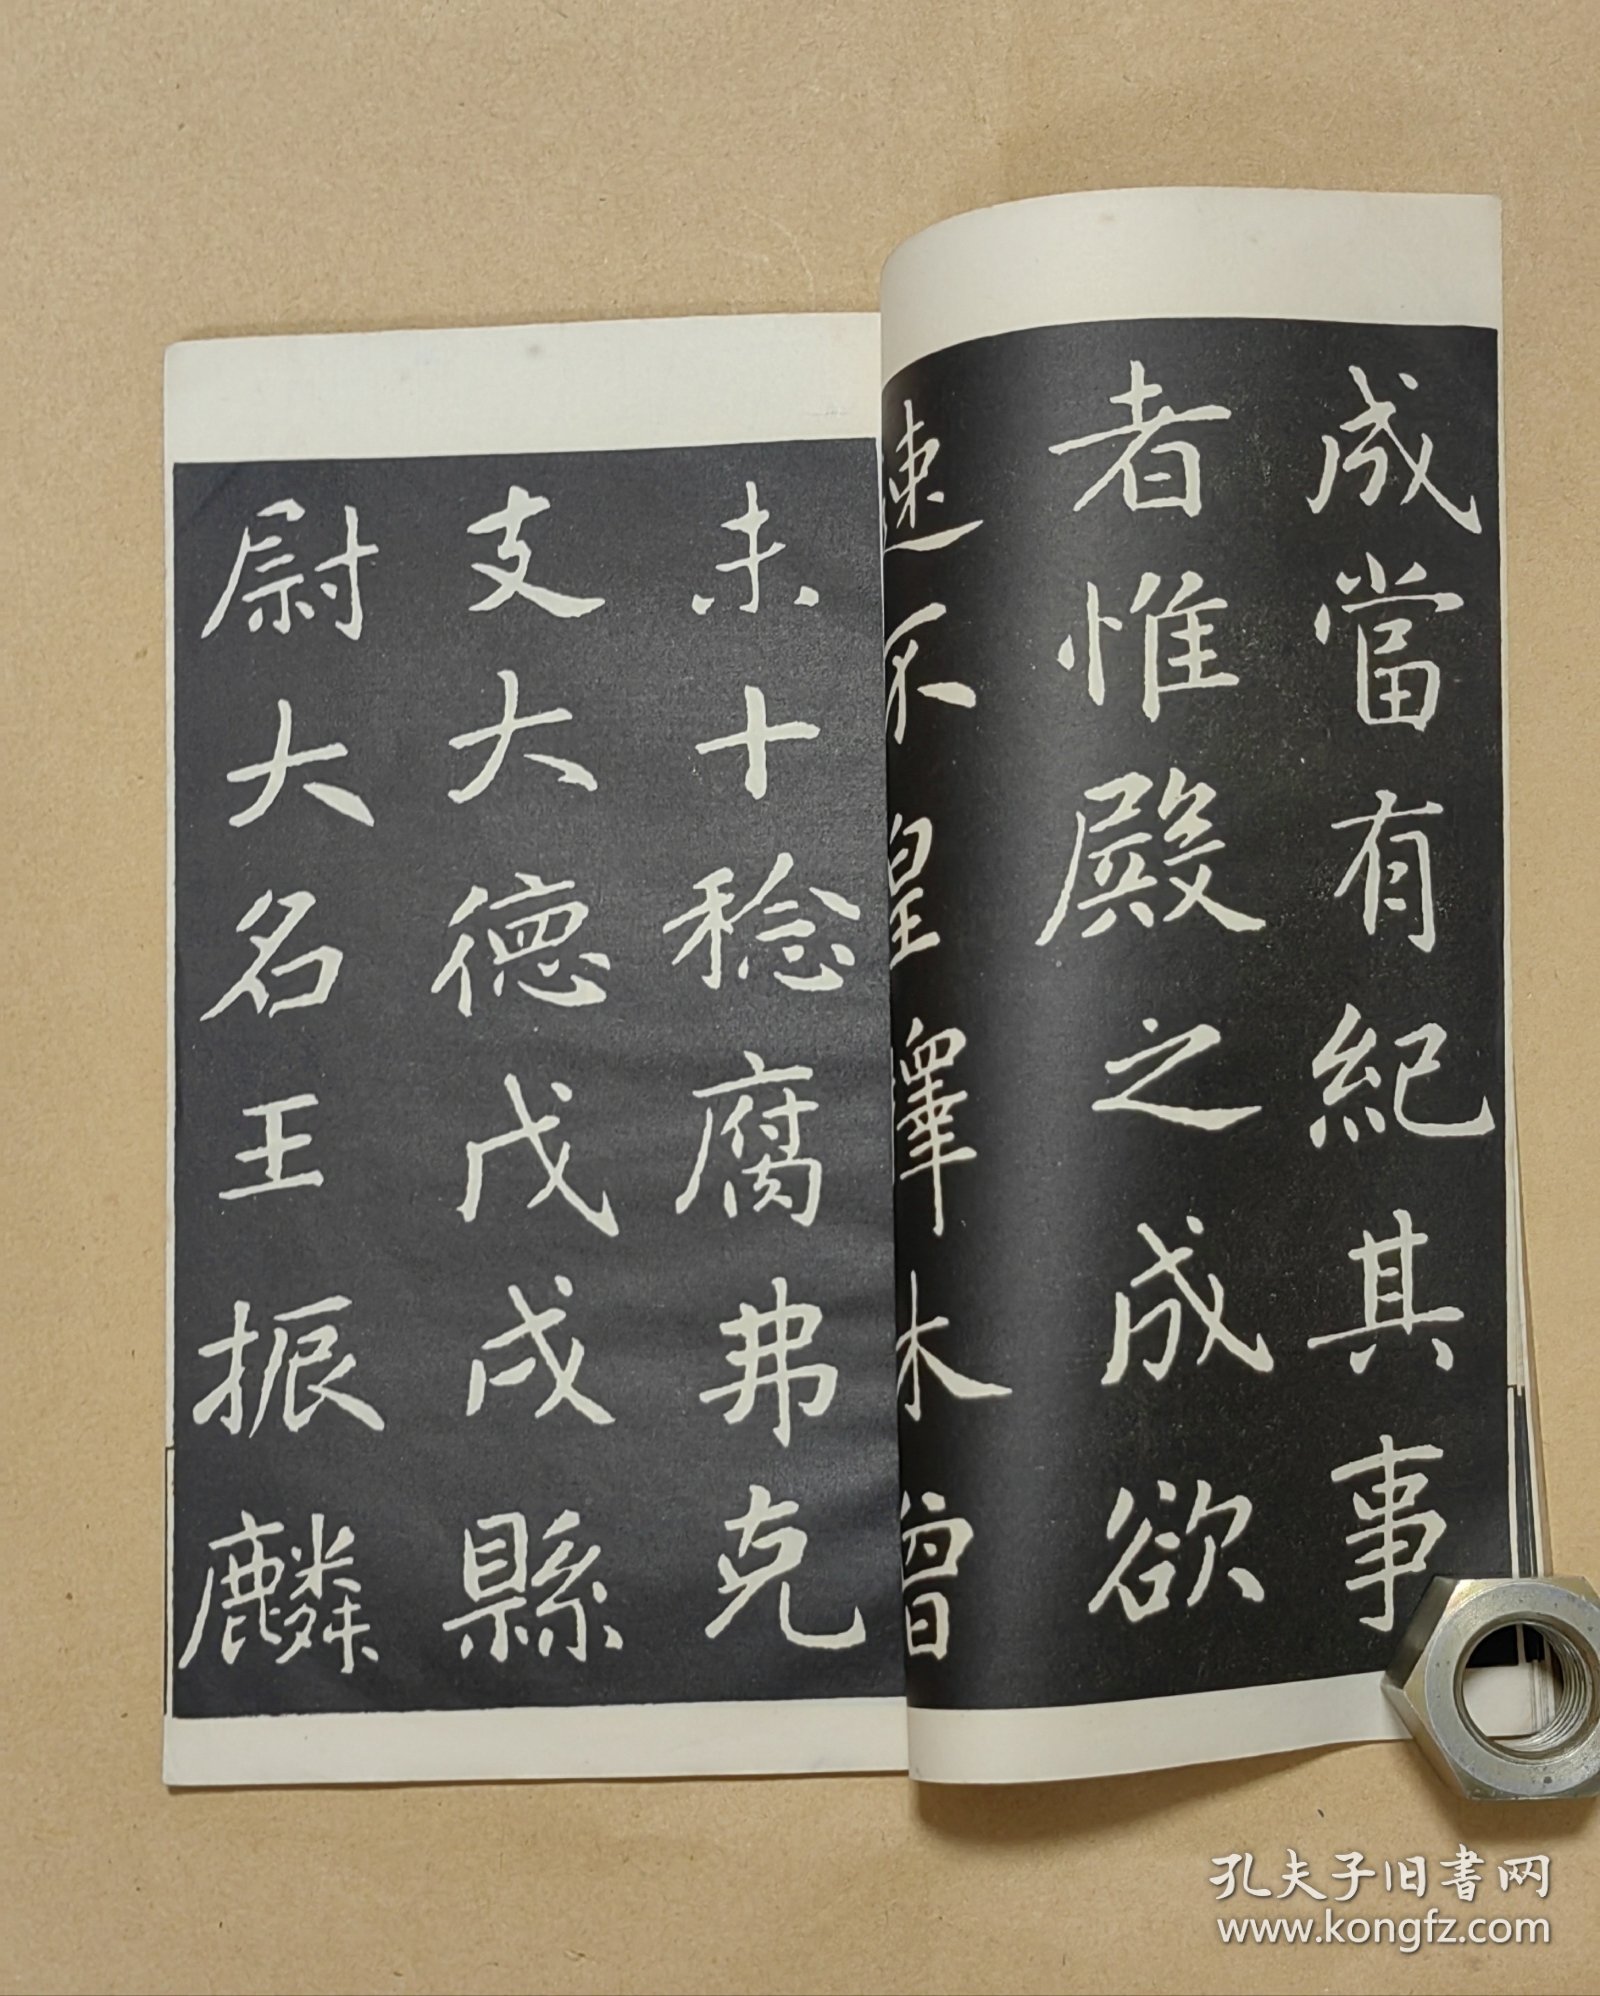 成當有紀其事
者惟殿之成欲
速不皇擇木曾
未十稔腐弗克
支大德戊戌縣
尉大名王振麟
孔夫子旧书网
www.kongfz.com